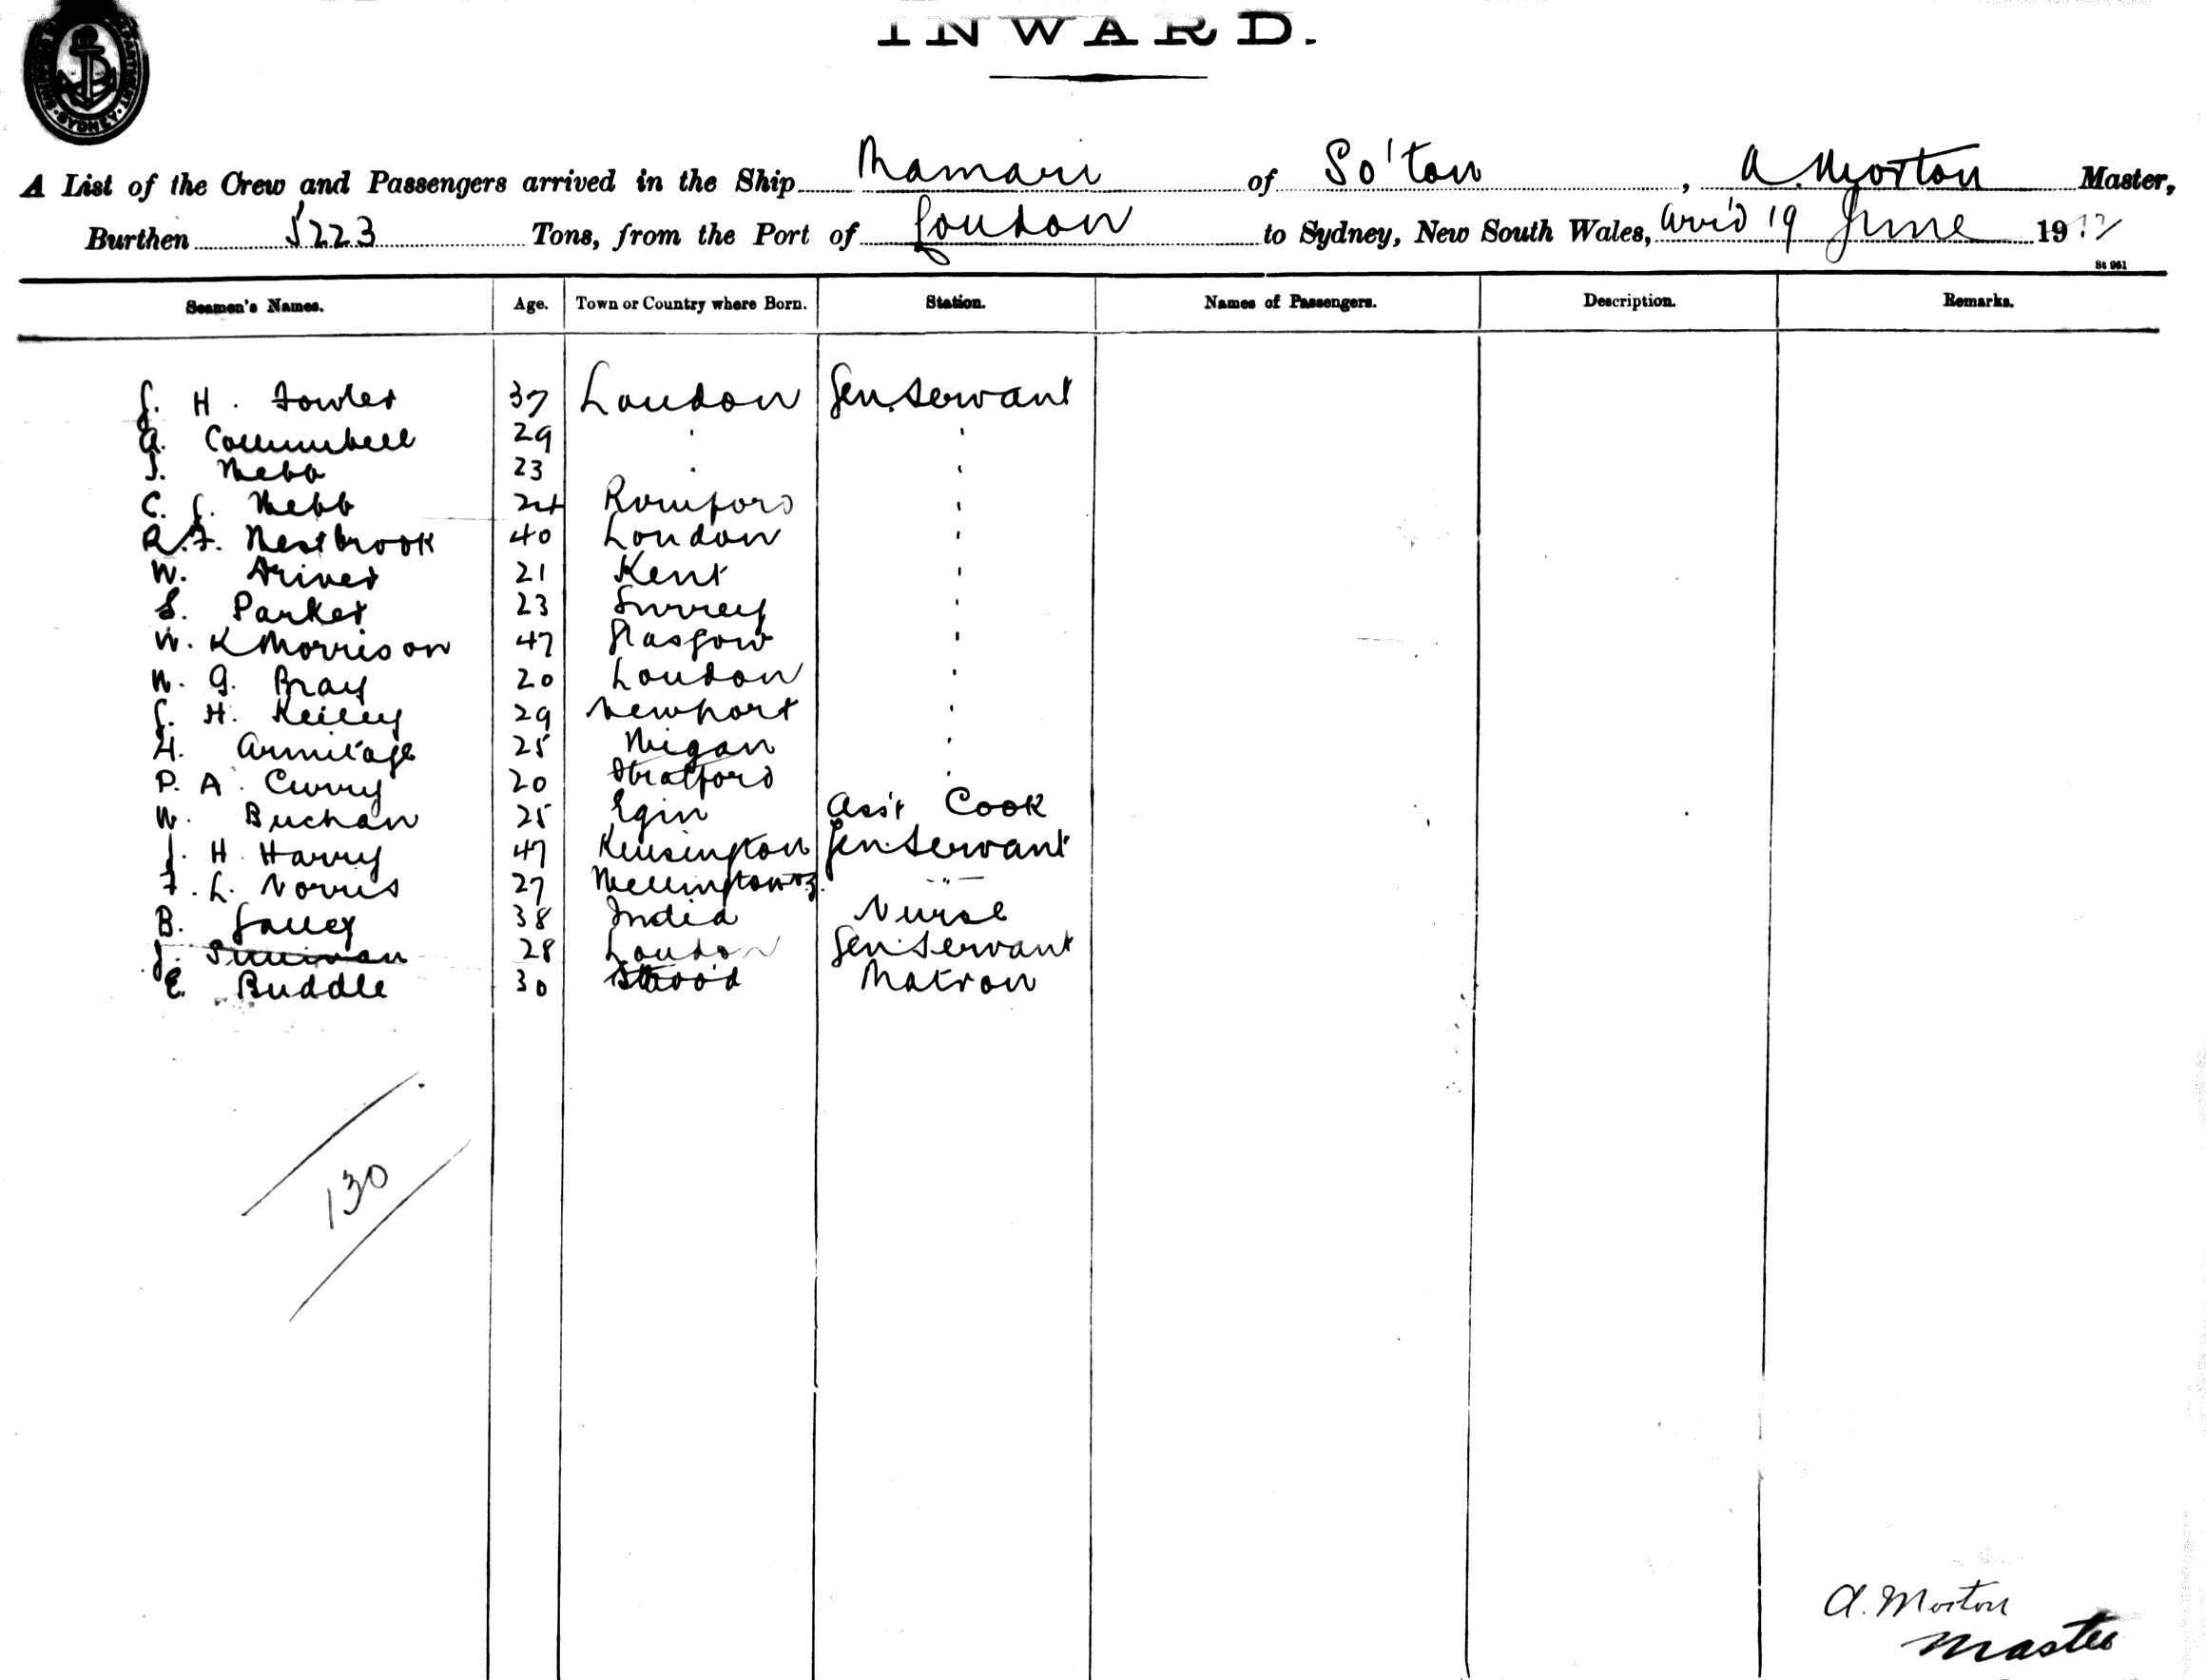 INWARD.
SHIPPING DEPARTMENT. SYDNEY.
A List of the Crew and Passengers arrived in the Ship Mamari of So'ton, A. Morton Master,
Burthen 5223 Tons, from the Port of London to Sydney, New South Wales, Arr'd 19 June 1912
St 961
Seamen's Names. Age. Town or Country where Born. Station. Names of Passengers. Description. Remarks.
G. H. Fowler 37 London Gen. Servant
A. Columbell 29 ' '
J. Webb 23 ' '
C. G. Webb 24 Romford '
R. F. Westbrook 40 London '
W. Driver 21 Kent '
S. Parker 23 Surrey '
W. K Morrison 47 Glasgow '
W. G. Bray 20 London '
G. H. Keiley 29 Newport '
H. Armitage 25 Wigan '
P. A. Curry 20 Stratford '
W. Buchan 25 Elgin Ass't Cook
J. H. Harry 47 Kensington Gen. Servant
F. L. Norris 27 Wellington NZ. - " -
B. 38 India Nurse
J. Sullivan 28 London Gen. Servant
E. Buddle 30 Matron
130
A. Morton
Master